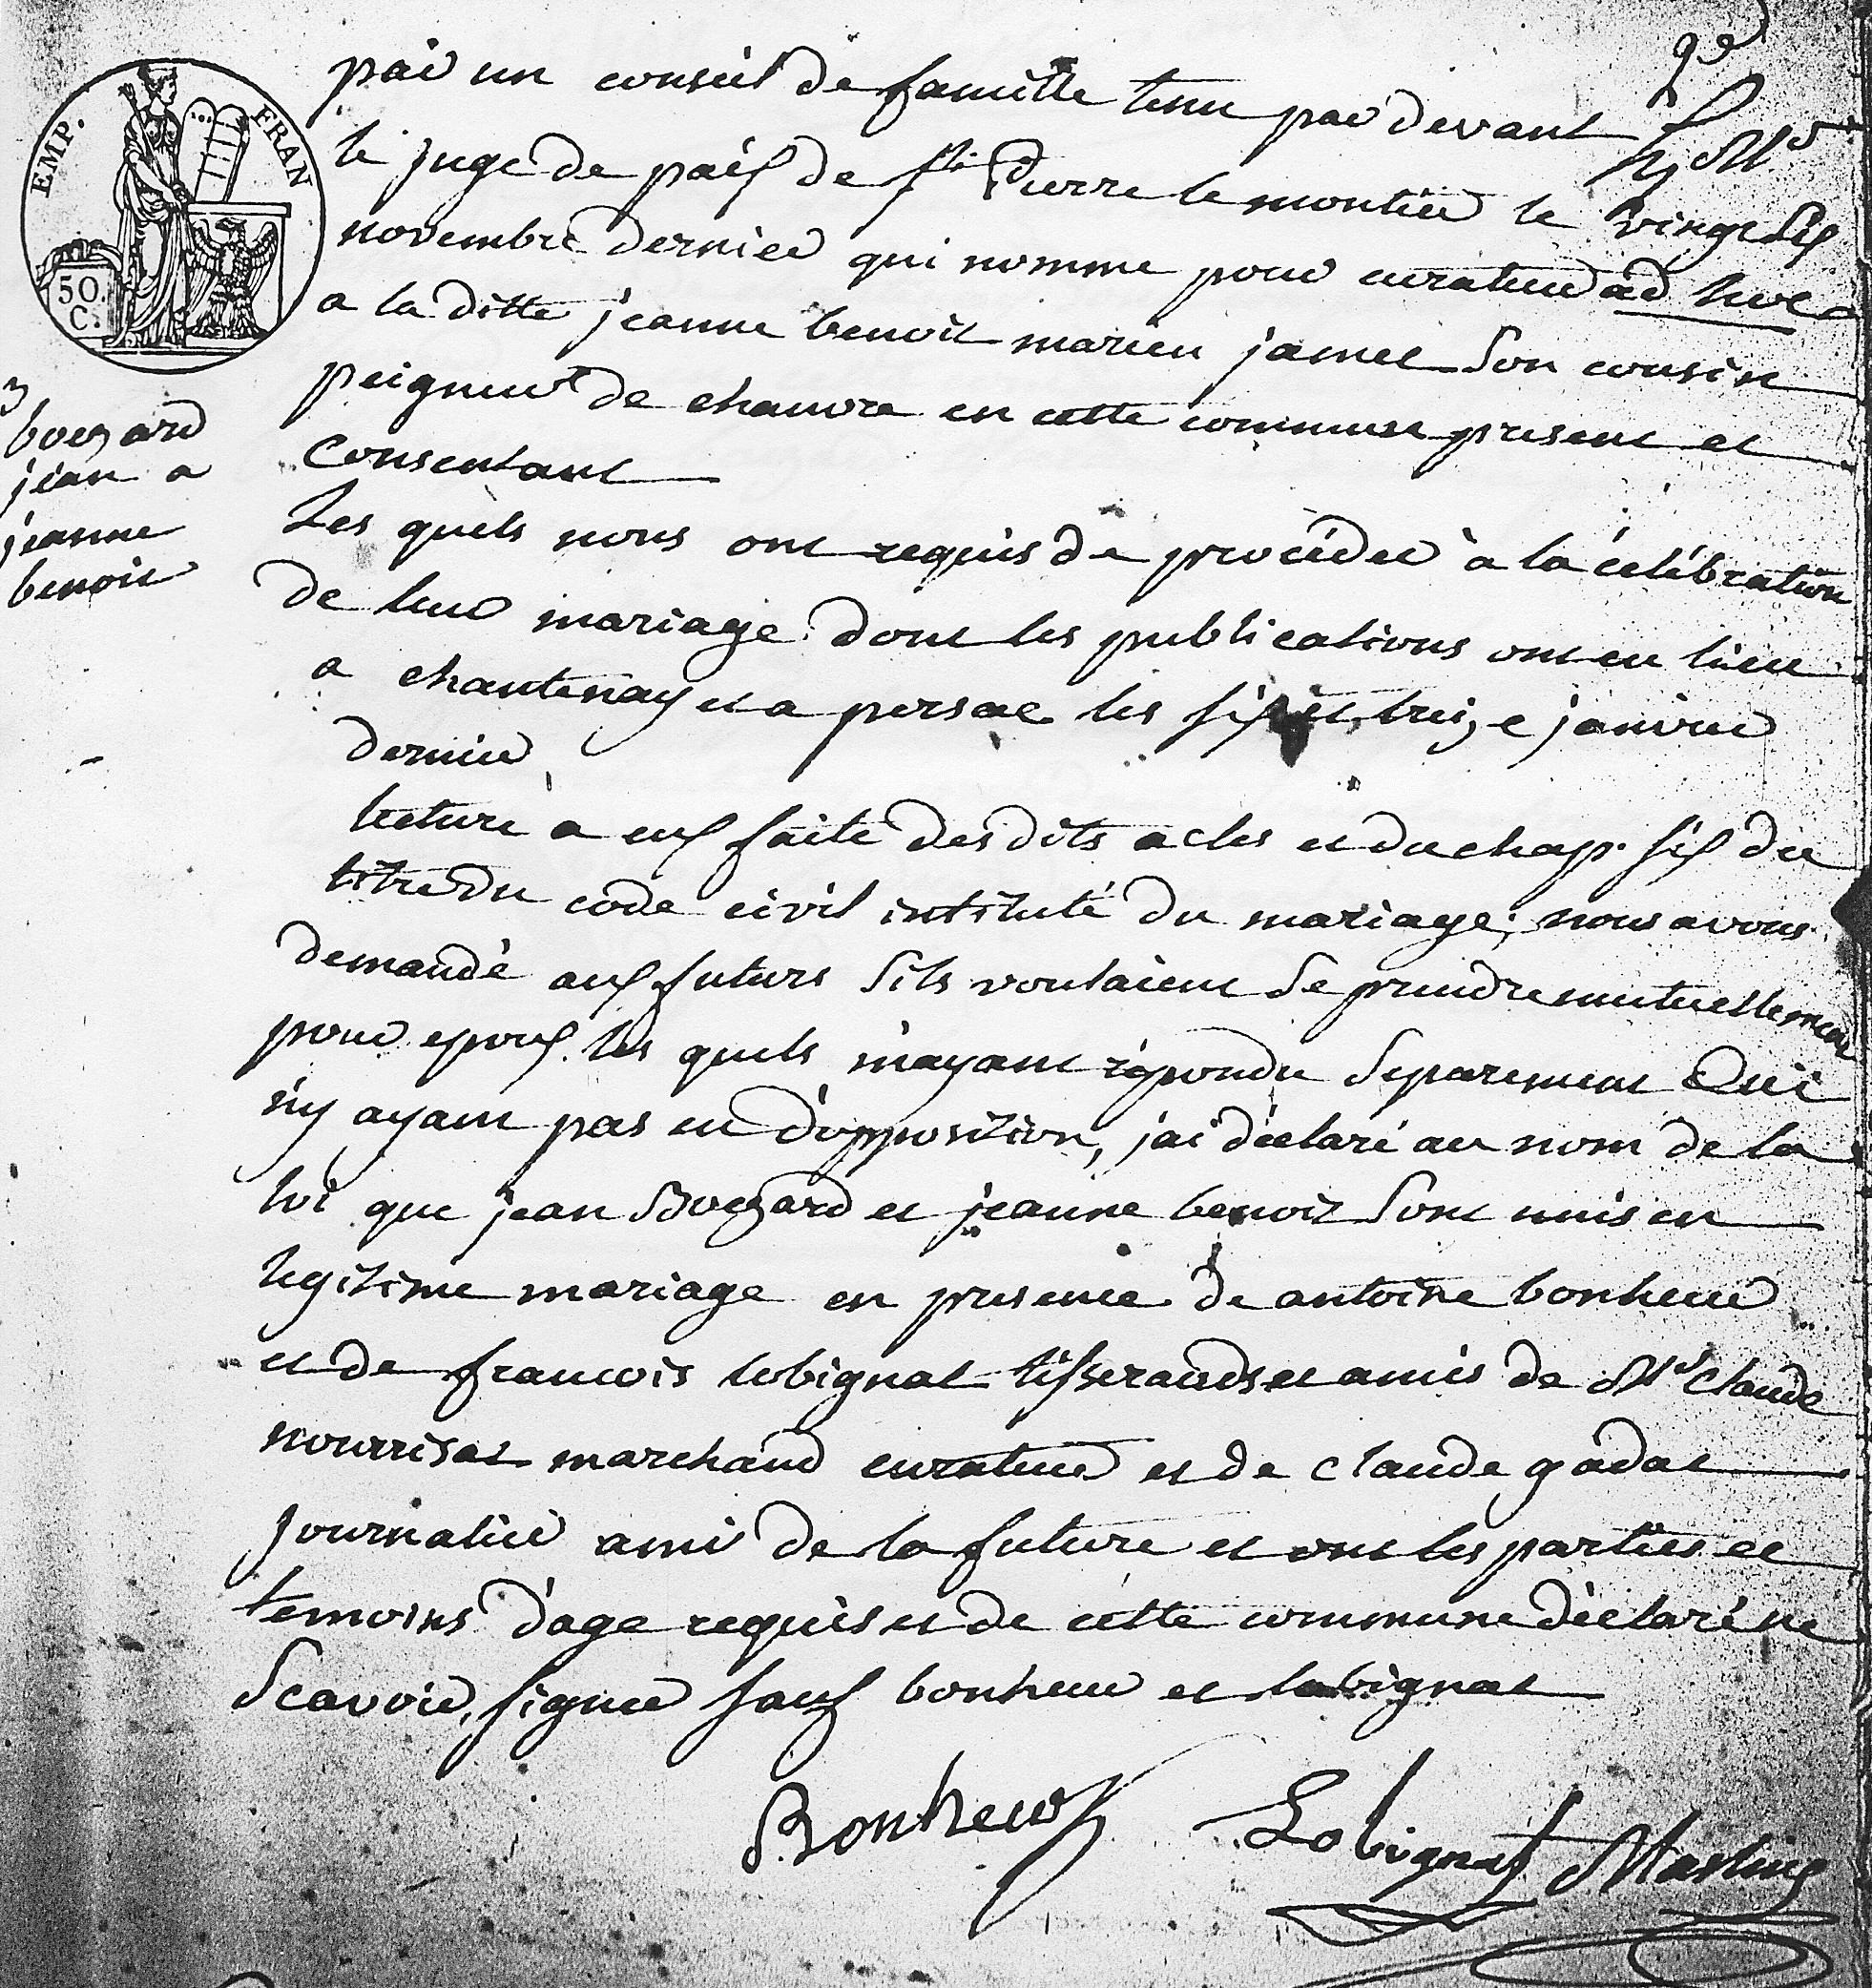 EMP. FRAN
50.
C.
3
bouzard
jean a
jeanne
benoit
par un conseil de famille tenu par devant
le juge de paix de st Pierre le moutier le vingt six
novembre dernier qui nomme pour curateur ad hoc
a la ditte jeanne benoit marien jamet son cousin
peigneur de chanvre en cette commune present et
Consentant
Les quels nous ont requis de procéder à la célébration
de leur mariage dont les publications ont eu lieu
a chantenay et a persac les six et treize janvier
dernier
lecture a eux faite des dits actes et du chap. six du
titre du code civil intitulé du mariage; nous avons
demandé aux futurs s'ils voulaient se prendre mutuellement
pour epoux. les quels m'ayant répondu separement Oui
n'y ayant pas eu d'opposition, j'ai déclaré au nom de la
loi que jean Bouzard et jeanne benoit sont unis en
legitime mariage en presence de antoine bonheur
et de francois lobignat tisserands et amis de Mr Claude
nourrisat marchand curateur et de claude gadat
journalier ami de la future et ont les parties et
temoins d'age requis et de cette commune déclaré ne
Scavoir signer sauf bonheur et lobignat
Bonheur Lobignat Martin